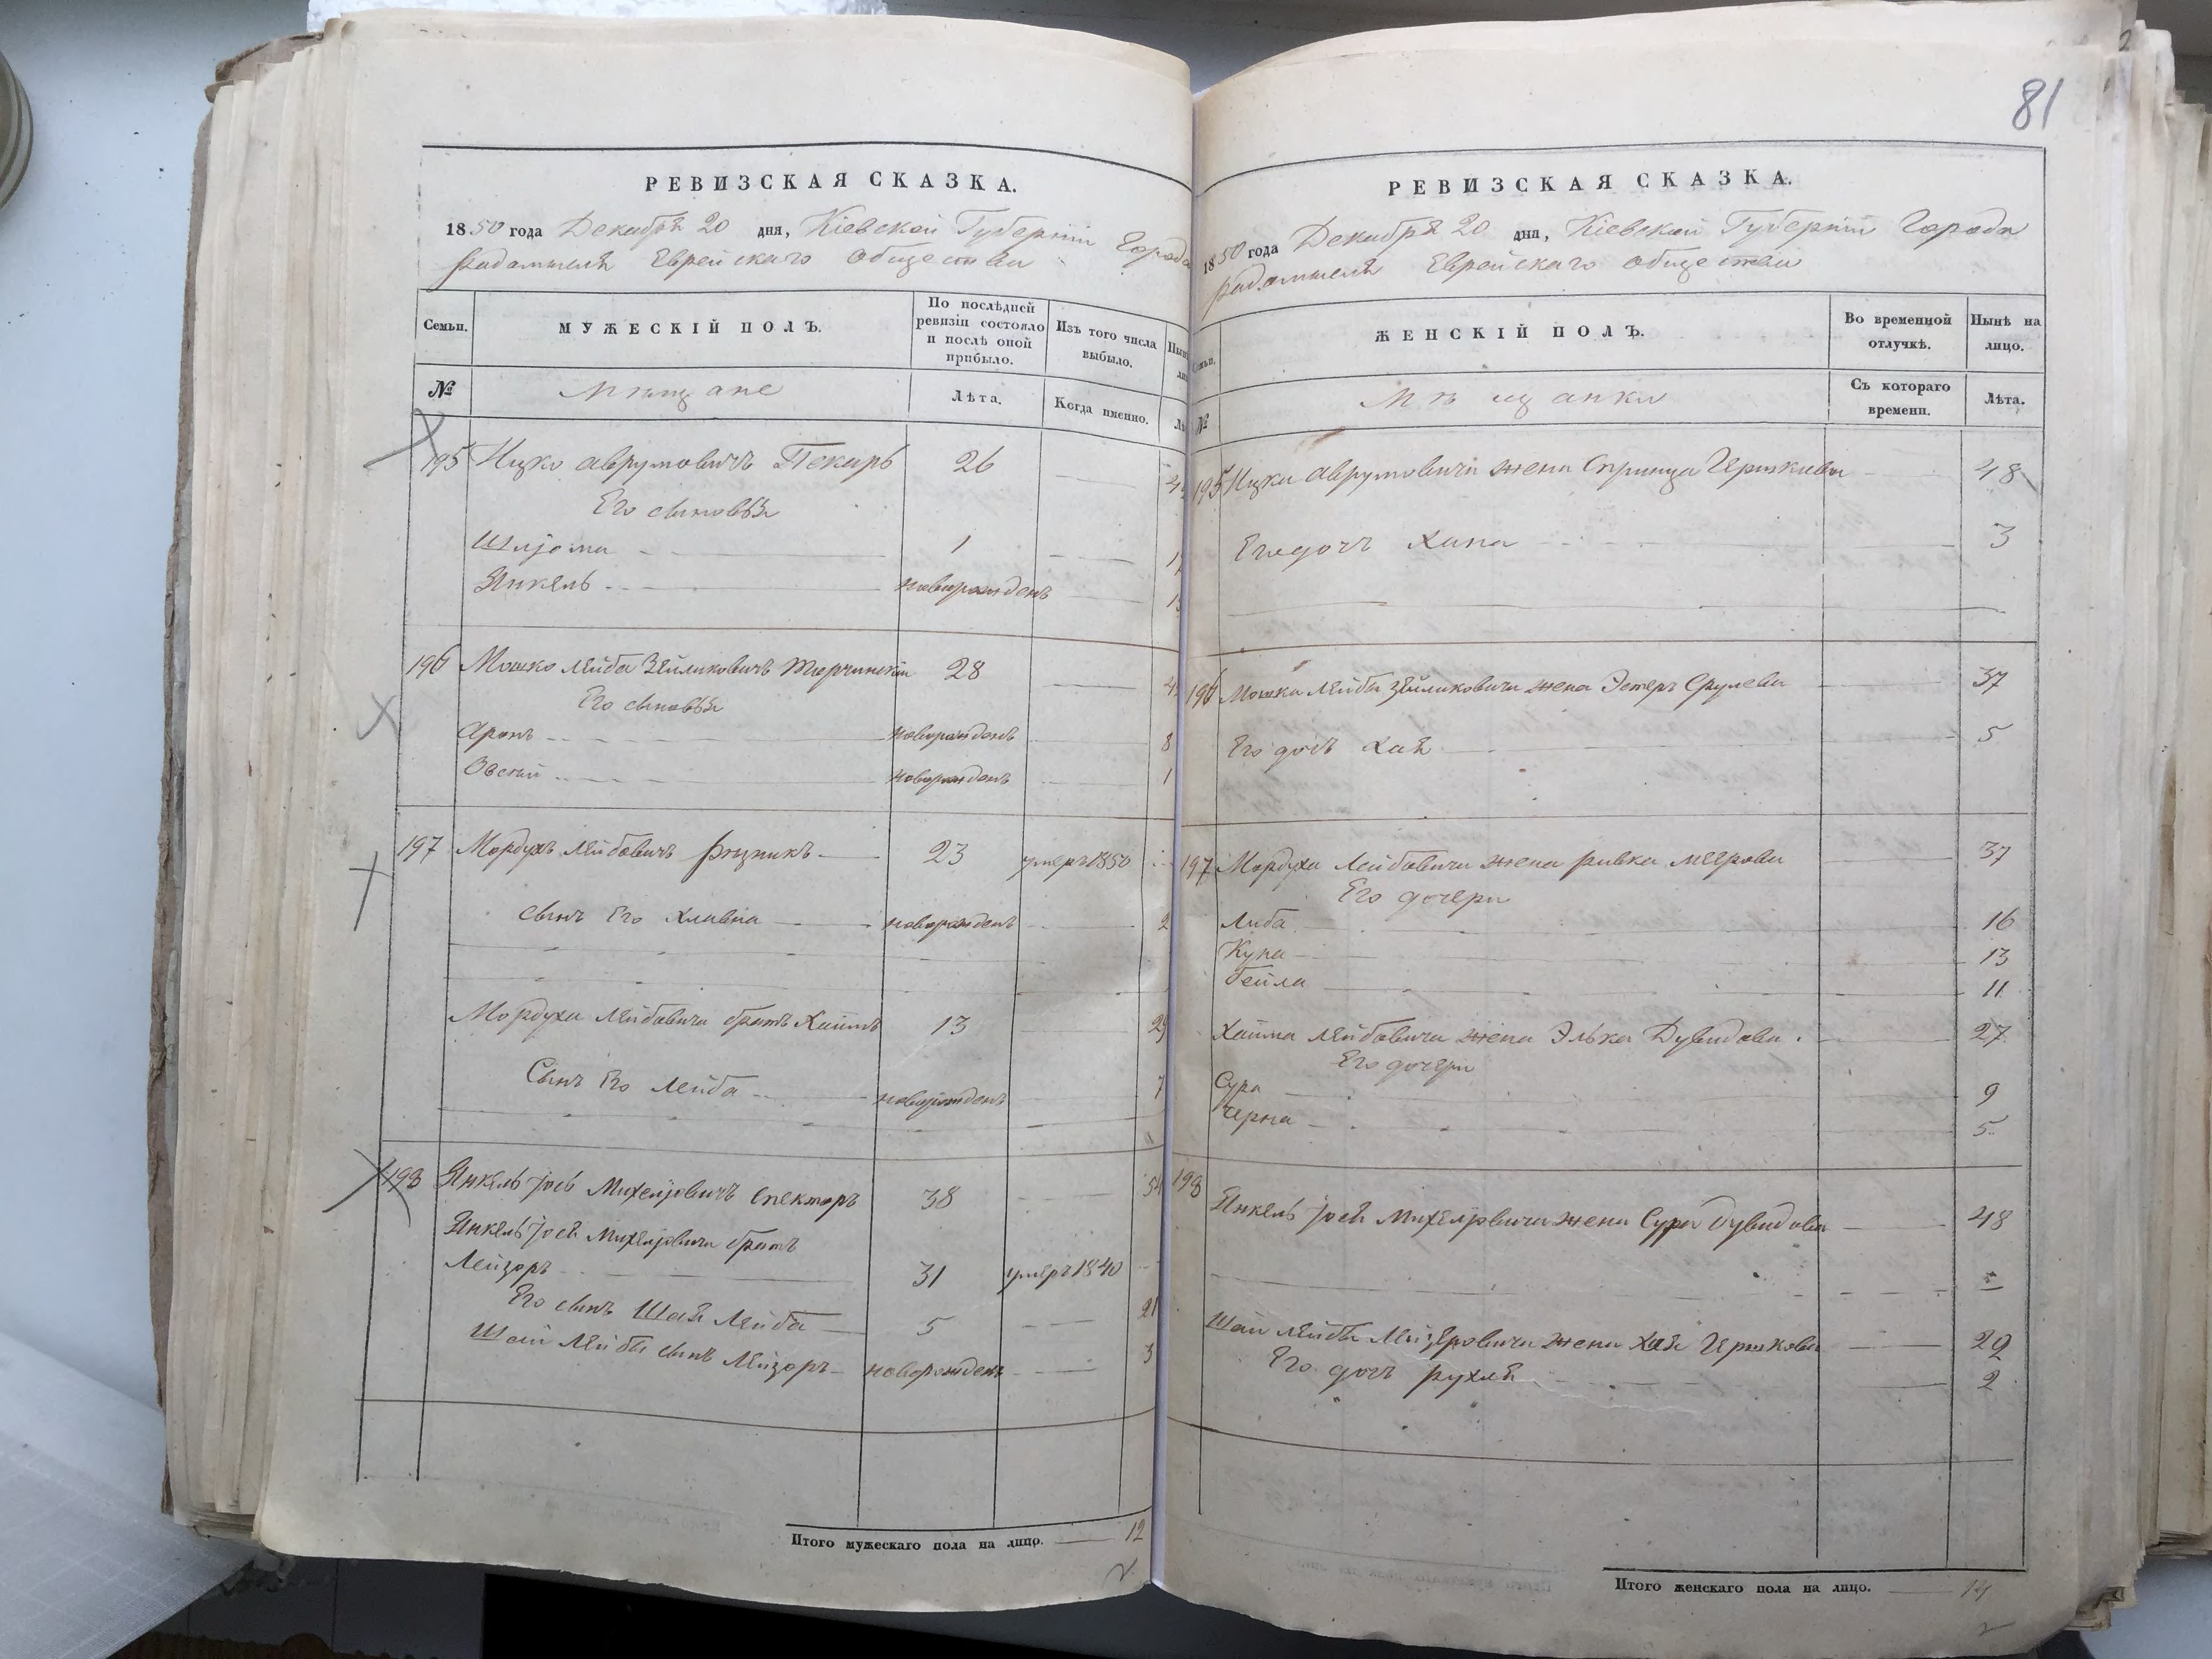 РЕВИЗСКАЯ СКАЗКА.
1850 года Декабря 20 дня, Кіевской Губерніи Города
Радомысля Еврейскаго Общества
Семьи. МУЖЕСКІЙ ПОЛЪ. По послѣдней ревизіи состояло и послѣ оной прибыло. Изъ того числа выбыло.
№ Мѣщане Лѣта. Когда именно.
195 Ицко Аврумовичъ Пекарь 26
Его сыновья
Шліома 1
Янкель новорожденъ
196 Мошко Лейба Зейликовичъ 28
Его сыновья
Аронъ новорожденъ 8
Овсей новорожденъ 1
197 Мордухъ Лейбовичъ Рѣзникъ 23 умеръ 1850
сынъ Его Хлавна новорожденъ 2
Мордуха Лейбовича братъ Хаимъ 13
Сынъ Его Лейба новорожденъ 7
198 Янкель Іось Михеліовичъ Спекторъ 38
Янкель Іося Михеліовича братъ
Лейзоръ 31 умеръ 1840
Его сынъ Шая Лейба 5 21
Шаи Лейбы сынъ Лейзоръ новорожденъ 3
Итого мужескаго пола на лицо. 12
81
РЕВИЗСКАЯ СКАЗКА.
1850 года Декабря 20 дня, Кіевской Губерніи Города
Радомысля Еврейскаго Общества
ЖЕНСКІЙ ПОЛЪ. Во временной отлучкѣ. Нынѣ на лицо.
№ Мѣщанки Съ котораго времени. Лѣта.
195 Ицка Аврумовича жена Спринца Гершкова 48
Его дочь Хана 3
196 Мошка Лейбы Зейликовича жена Эстеръ Срулева 37
Его дочь Хая 5
197 Мордуха Лейбовича жена Ривка Меерова 37
Его дочери
Либа 16
Куна 13
Бейла 11
Хаима Лейбовича жена Элька Дувидова 27
Его дочери
Сура 9
Черна 5
198 Янкель Іося Михеліовича жена Сура Дувидова 48
Шаи Лейбы Лейзеровича жена Хая Гершкова 22
Его дочь Рухля 2
Итого женскаго пола на лицо. 14